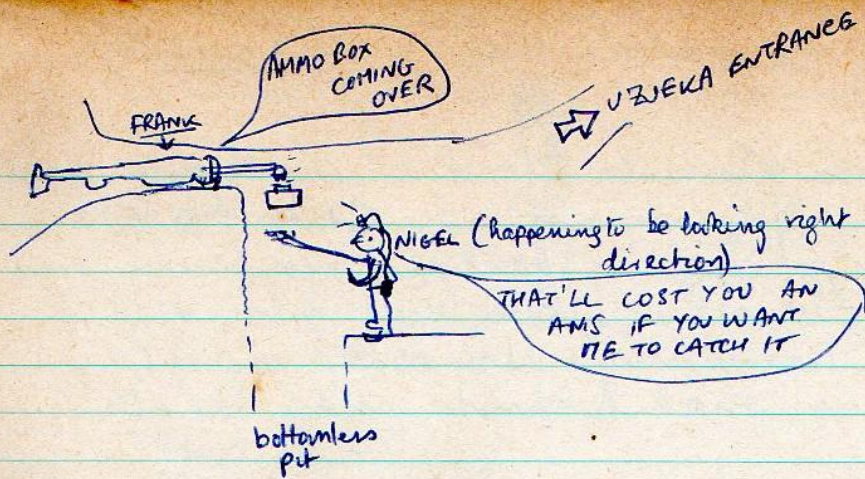 AMMO BOX
COMING
OVER
FRANK
UZUEKA ENTRANCE
NIGEL (happening to be looking right
direction)
THAT'LL COST YOU AN
ANIS IF YOU WANT
ME TO CATCH IT
bottomless
pit